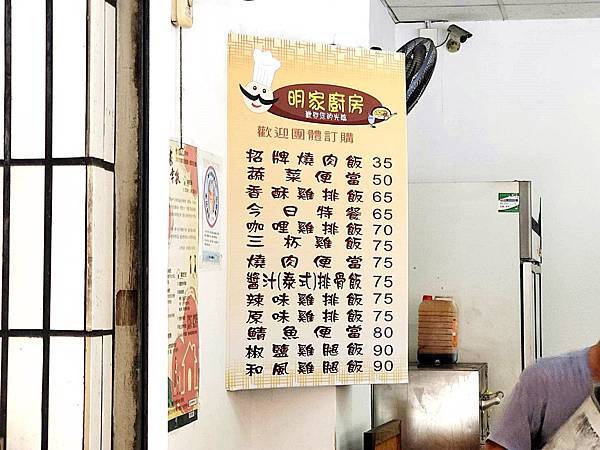 明家廚房
歡迎您的光臨
歡迎團體訂購
招牌燒肉飯 35
蔬菜便當 50
香酥雞排飯 65
今日特餐 65
咖哩雞排飯 70
三杯雞飯 75
燒肉便當 75
醬汁(泰式)排骨飯 75
辣味雞排飯 75
原味雞排飯 75
鯖魚便當 80
椒鹽雞腿飯 90
和風雞腿飯 90